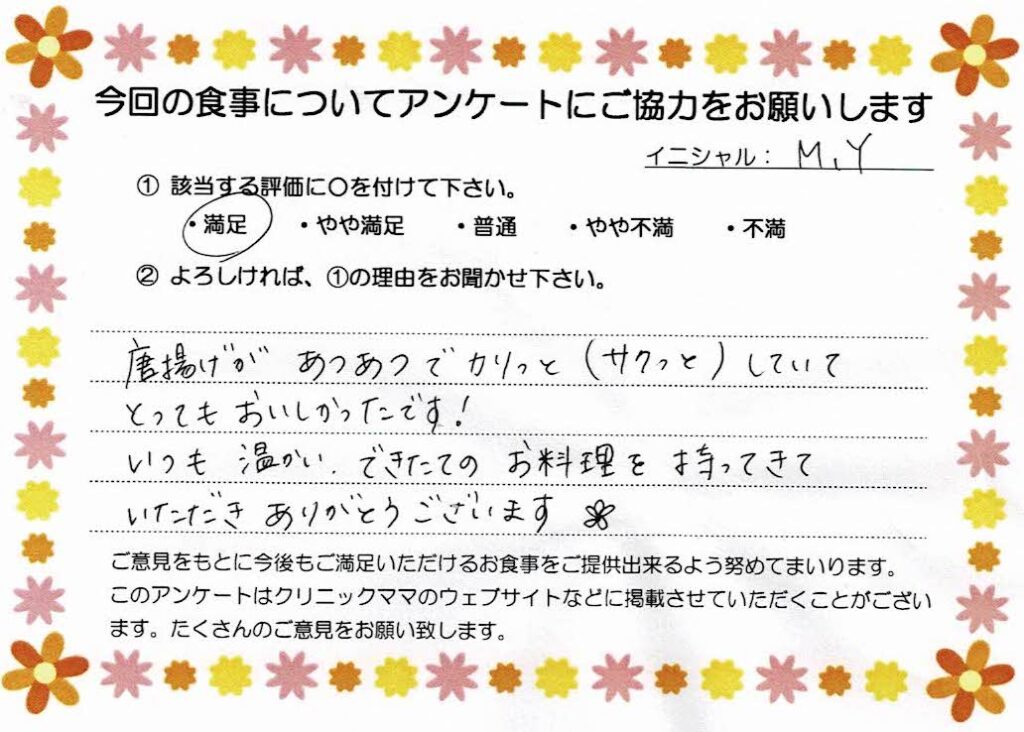 今回の食事についてアンケートにご協力をお願いします
イニシャル： M.Y
① 該当する評価に〇を付けて下さい。
・満足 ・やや満足 ・普通 ・やや不満 ・不満
② よろしければ、①の理由をお聞かせ下さい。
唐揚げが あつあつで カリっと (サクっと) していて
とっても おいしかったです!
いつも 温かい、できたての お料理を 持ってきて
いただき ありがとうございます
ご意見をもとに今後もご満足いただけるお食事をご提供出来るよう努めてまいります。
このアンケートはクリニックママのウェブサイトなどに掲載させていただくことがござい
ます。たくさんのご意見をお願い致します。